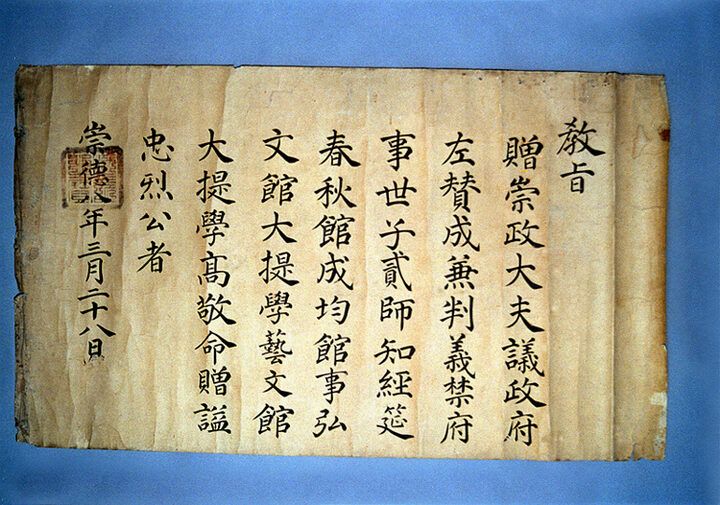 敎旨
贈崇政大夫議政府
左贊成兼判義禁府
事世子貳師知經筵
春秋館成均館事弘
文館大提學藝文館
大提學高敬命贈謚
忠烈公者
崇德八年三月二十八日